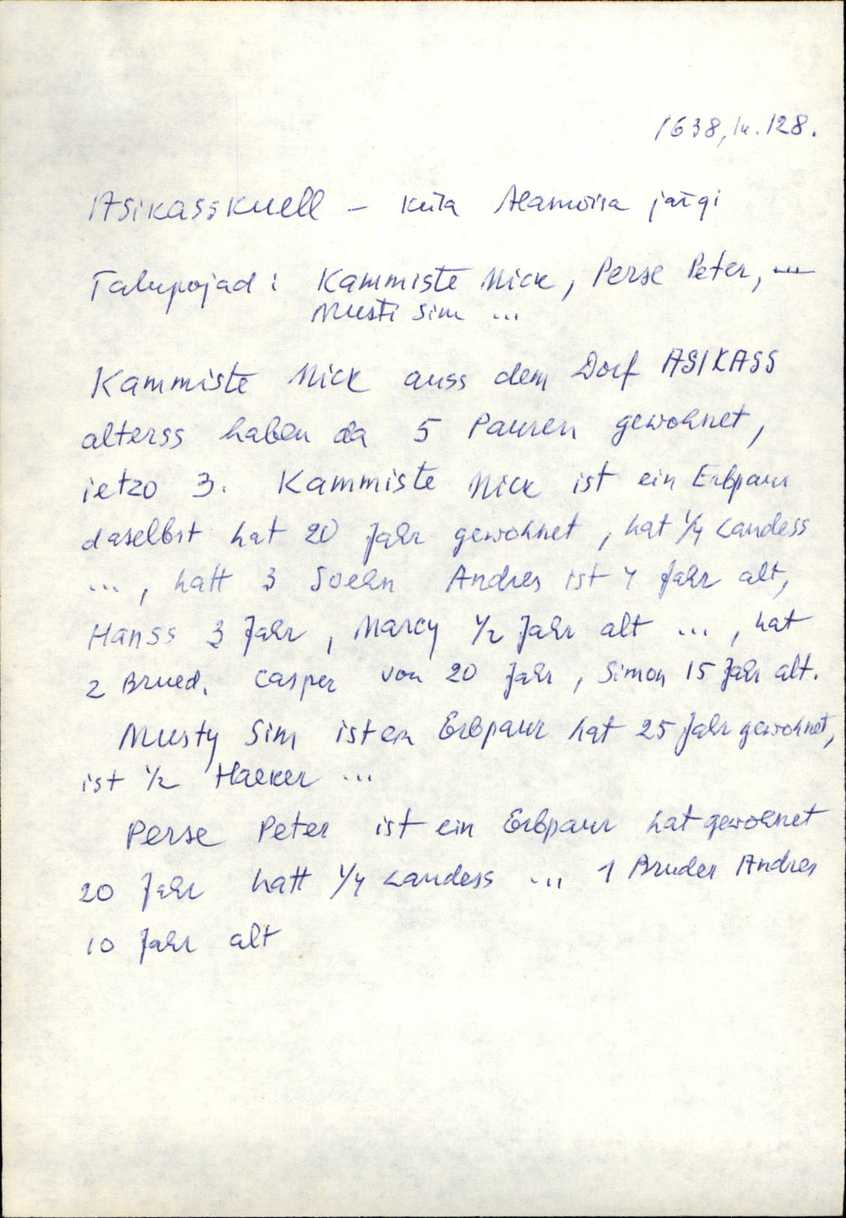 1638, lk. 128.
Asikasskuell – küla Alamõisa järgi
Talupojad: Kammiste Nick, Perse Peter, ...
Musti Sim ...
Kammiste Nick auss dem Dorf ASIKASS
alterss haben da 5 Pauren gewohnet,
ietzo 3. Kammiste Nick ist ein Erbpaur
daselbst hat 20 Jahr gewohnet, hat 1/4 Landess
..., hatt 3 Soehn Andres ist 4 Jahr alt,
Hanss 3 Jahr, Marcy 1/2 Jahr alt ..., hat
2 Brued. Casper von 20 Jahr, Simon 15 Jahr alt.
Musty Sim ist ein Erbpaur hat 25 Jahr gewohnet,
ist 1/2 Haeker ...
Perse Peter ist ein Erbpaur hat gewohnet
20 Jahr hatt 1/4 Landess ... 1 Bruder Andres
10 Jahr alt